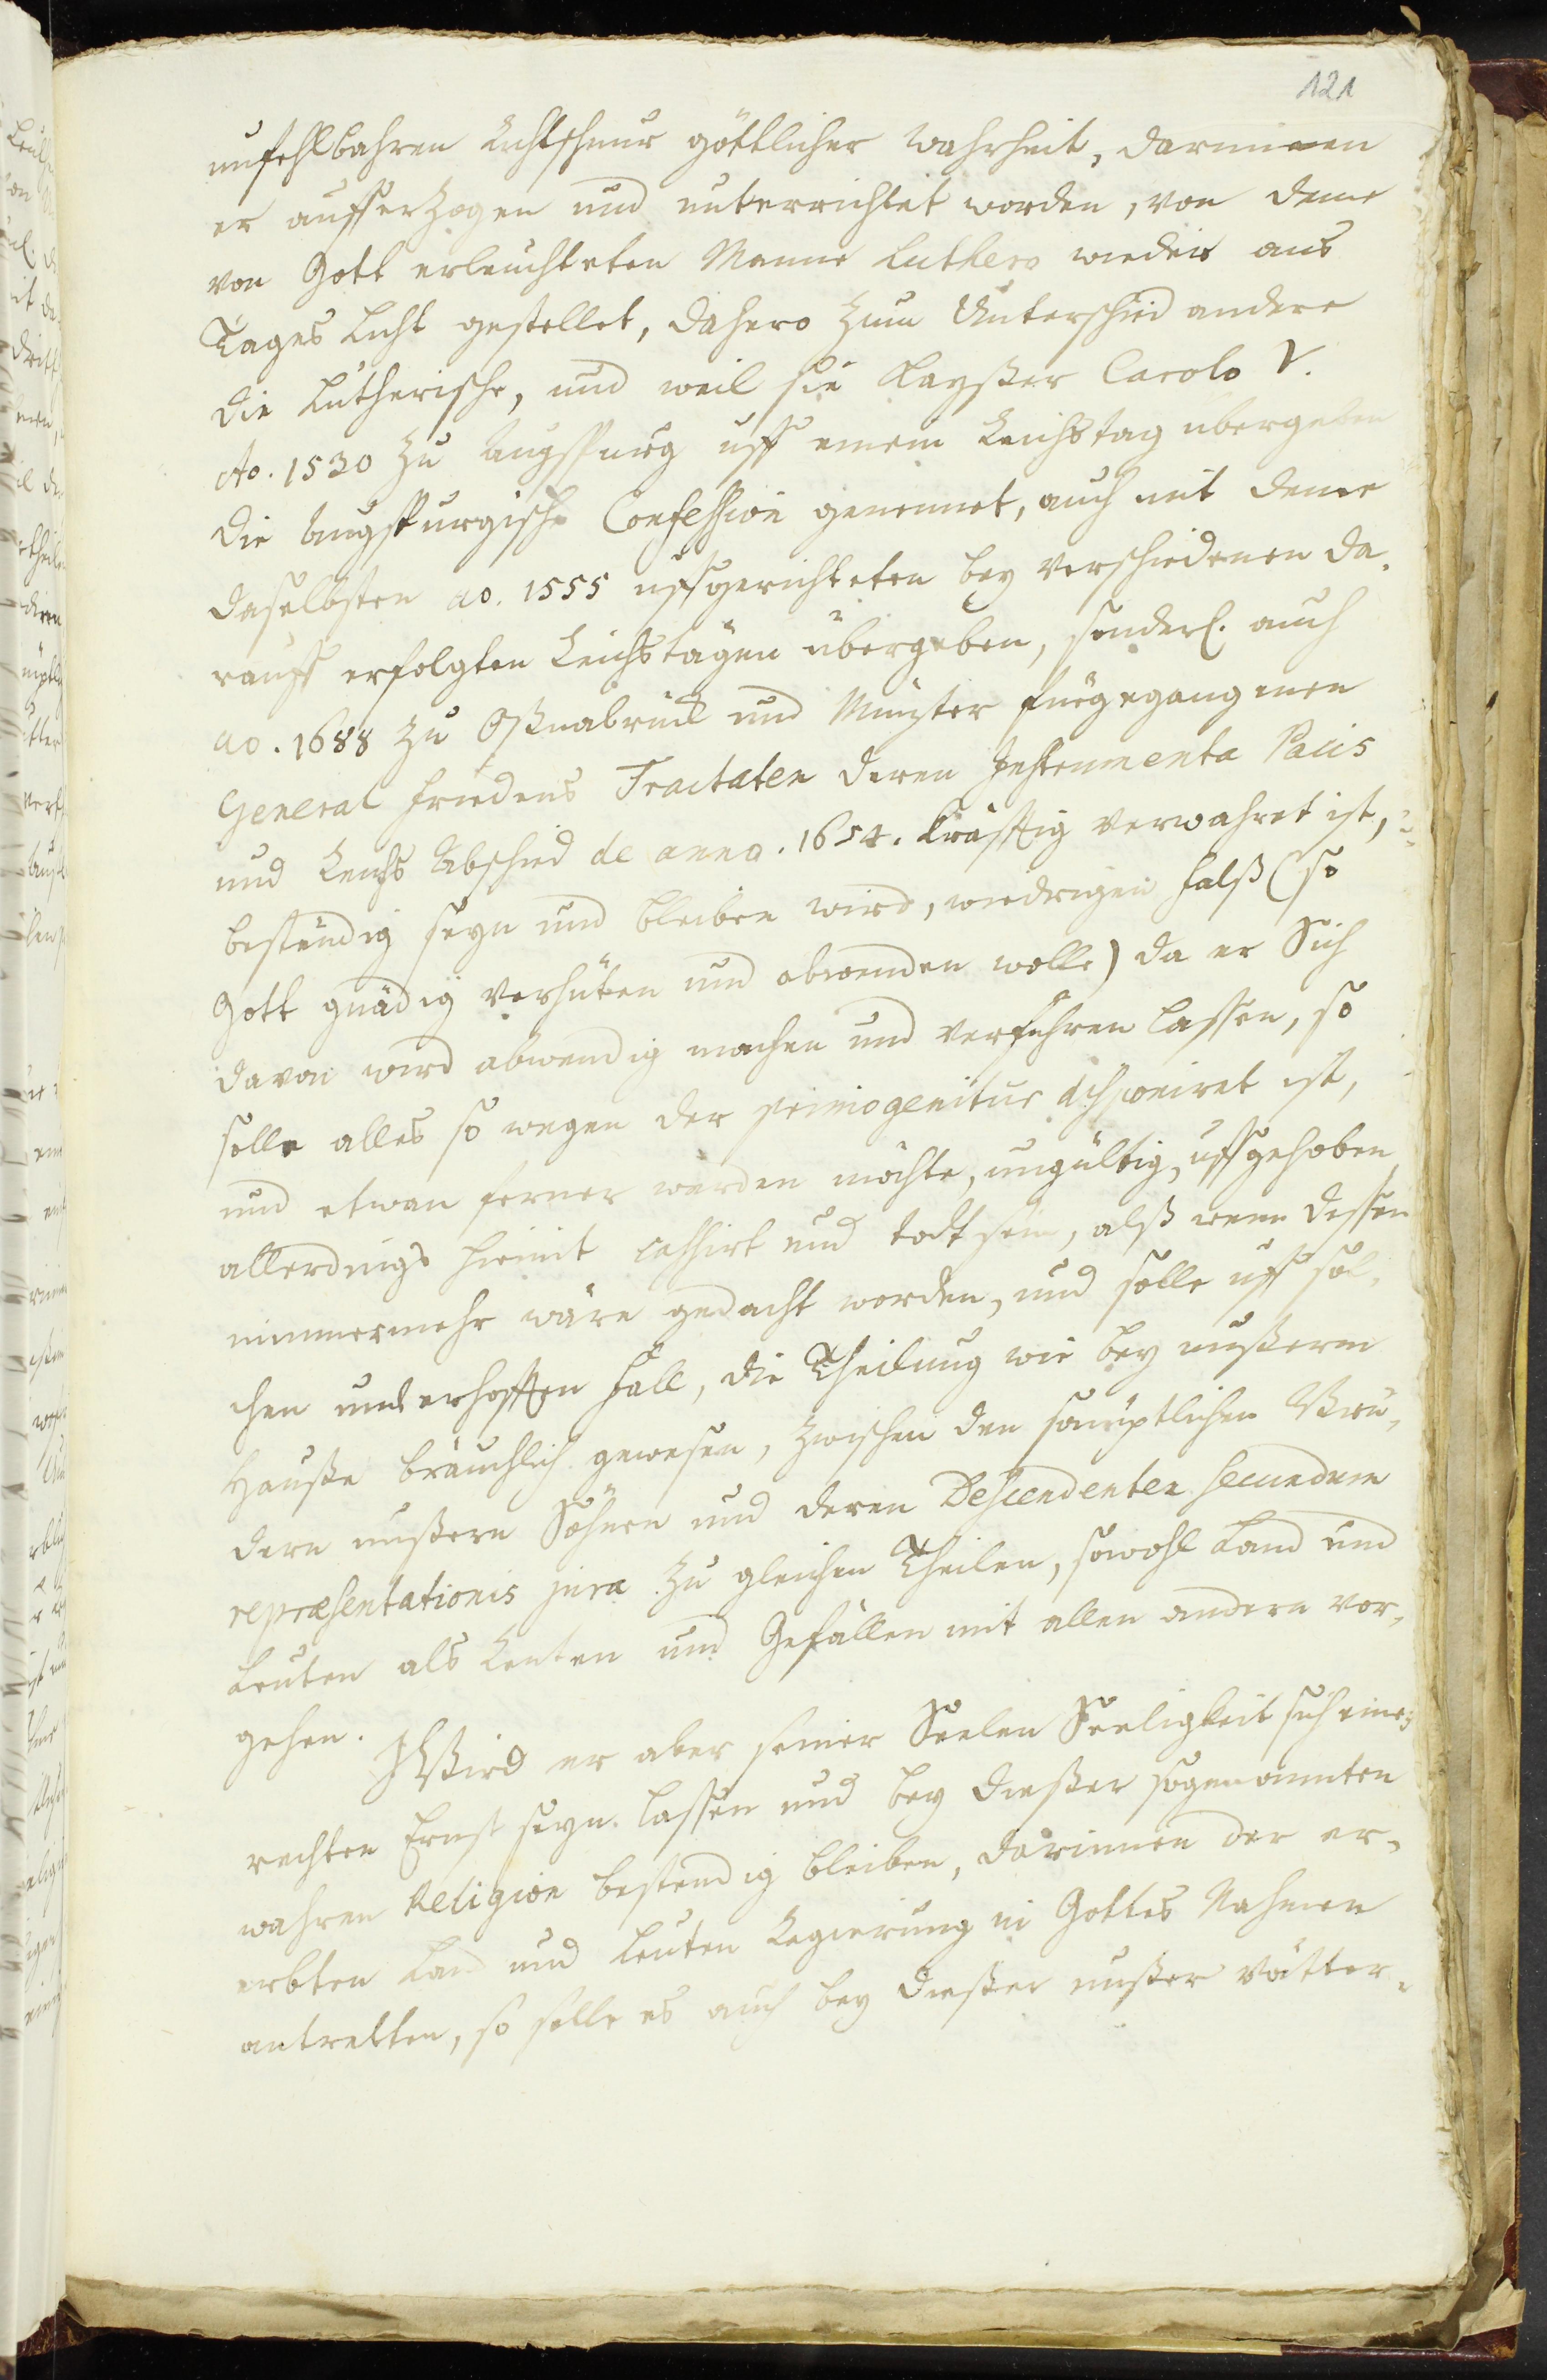 121
unfehlbahren Richtschnur göttlicher Wahrheit, darinnen
er aufferzogen und unterrichtet worden, von deme
von Gott erleuchteten Manne Luthero wieder ans
Tages Licht gestellet, dahero zum Unterschied andere
die Lutherische, und weil sie Kayßer Carolo V.
Ao. 1530 zu Augspurg uff einem Reichstag übergeben
die Augspurgische Confession genennet, auch mit deme
daselbsten ao. 1555 uffgerichteten bey verschiedenen da-
rauff erfolgten Reichstägen übergeben, sonderl. auch
ao. 1688 zu Oßnabrück und Münster fürgegangenen
General Friedens Tractaten deren Instrumenta Pacis
und Reichs Abschied de anno. 1654. kräfftig verwahret ist,
beständig seyn und bleiben wird, wiedrigen falß (so
Gott gnädig verhüten und abwenden wolle) da er Sich
davon wird abwendig machen und verführen lassen, so
solle alles so wegen der primogenitur disponiret ist,
und etwan ferner werden möchte, ungültig, uffgehoben
allerdings hiemit cassirt und todt sein, alß wenn dessen
nimmermehr wäre gedacht worden, und solle uff sol-
chen unverhofften Fall, die Theilung wie bey unßerm
Hauße bräuchlich gewesen, zwischen den sämptlichen Brü-
dern unßern Söhnen und deren Descendenten secundum
repræsentationis jura zu gleichen Theilen, sowohl Land und
Leuten als Renten und Gefällen mit allen andern vor-
gehen.
Wird er aber seiner Seelen Seeligkeit sich einen
rechten Ernst seyn lassen und bey dießer sogenannten
wahren Religion bestendig bleiben, darinnen der er-
erbten Land und Leuten Regierung in Gottes Nahmen
antretten, so solle es auch bey dießer unßer Vätter-